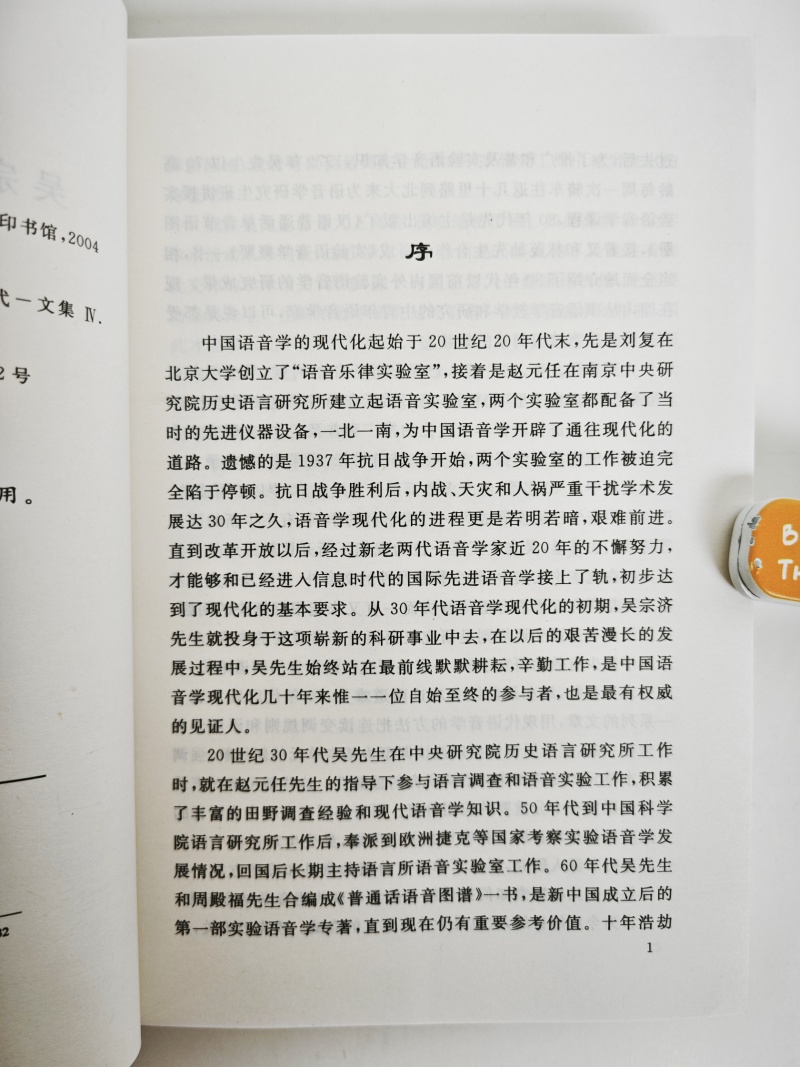 印书馆,2004
代—文集 Ⅳ.
2号
用。
32
序
中国语音学的现代化起始于 20 世纪 20 年代末,先是刘复在
北京大学创立了“语音乐律实验室”,接着是赵元任在南京中央研
究院历史语言研究所建立起语音实验室,两个实验室都配备了当
时的先进仪器设备,一北一南,为中国语音学开辟了通往现代化的
道路。遗憾的是 1937 年抗日战争开始,两个实验室的工作被迫完
全陷于停顿。抗日战争胜利后,内战、天灾和人祸严重干扰学术发
展达 30 年之久,语音学现代化的进程更是若明若暗,艰难前进。
直到改革开放以后,经过新老两代语音学家近 20 年的不懈努力,
才能够和已经进入信息时代的国际先进语音学接上了轨,初步达
到了现代化的基本要求。从 30 年代语音学现代化的初期,吴宗济
先生就投身于这项崭新的科研事业中去,在以后的艰苦漫长的发
展过程中,吴先生始终站在最前线默默耕耘,辛勤工作,是中国语
音学现代化几十年来惟一一位自始至终的参与者,也是最有权威
的见证人。
20 世纪 30 年代吴先生在中央研究院历史语言研究所工作
时,就在赵元任先生的指导下参与语言调查和语音实验工作,积累
了丰富的田野调查经验和现代语音学知识。50 年代到中国科学
院语言研究所工作后,奉派到欧洲捷克等国家考察实验语音学发
展情况,回国后长期主持语言所语音实验室工作。60 年代吴先生
和周殿福先生合编成《普通话语音图谱》一书,是新中国成立后的
第一部实验语音学专著,直到现在仍有重要参考价值。十年浩劫
1